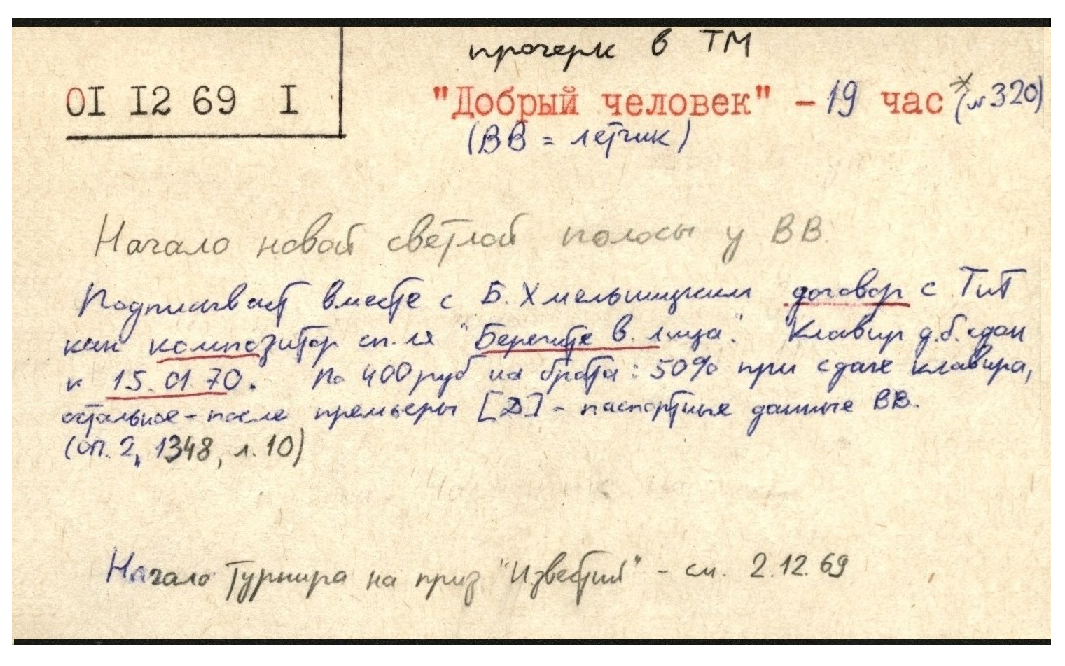 прочерк в ТМ
0I I2 69 I
"Добрый человек" - 19 час * (№ 320)
(ВВ = летчик)
Начало новой светлой полосы у ВВ.
Подписывает вместе с Б. Хмельницким договор с ТиТ
как композитор сп.ля "Берегите в. лица". Клавир д.б. сдан
к 15.01 70. По 400 руб на брата: 50% при сдаче клавира,
остальное - после премьеры [Д] - паспортные данные ВВ.
(оп. 2, 1348, л. 10)
Начало Турнира на приз "Известий" - см. 2.12.69